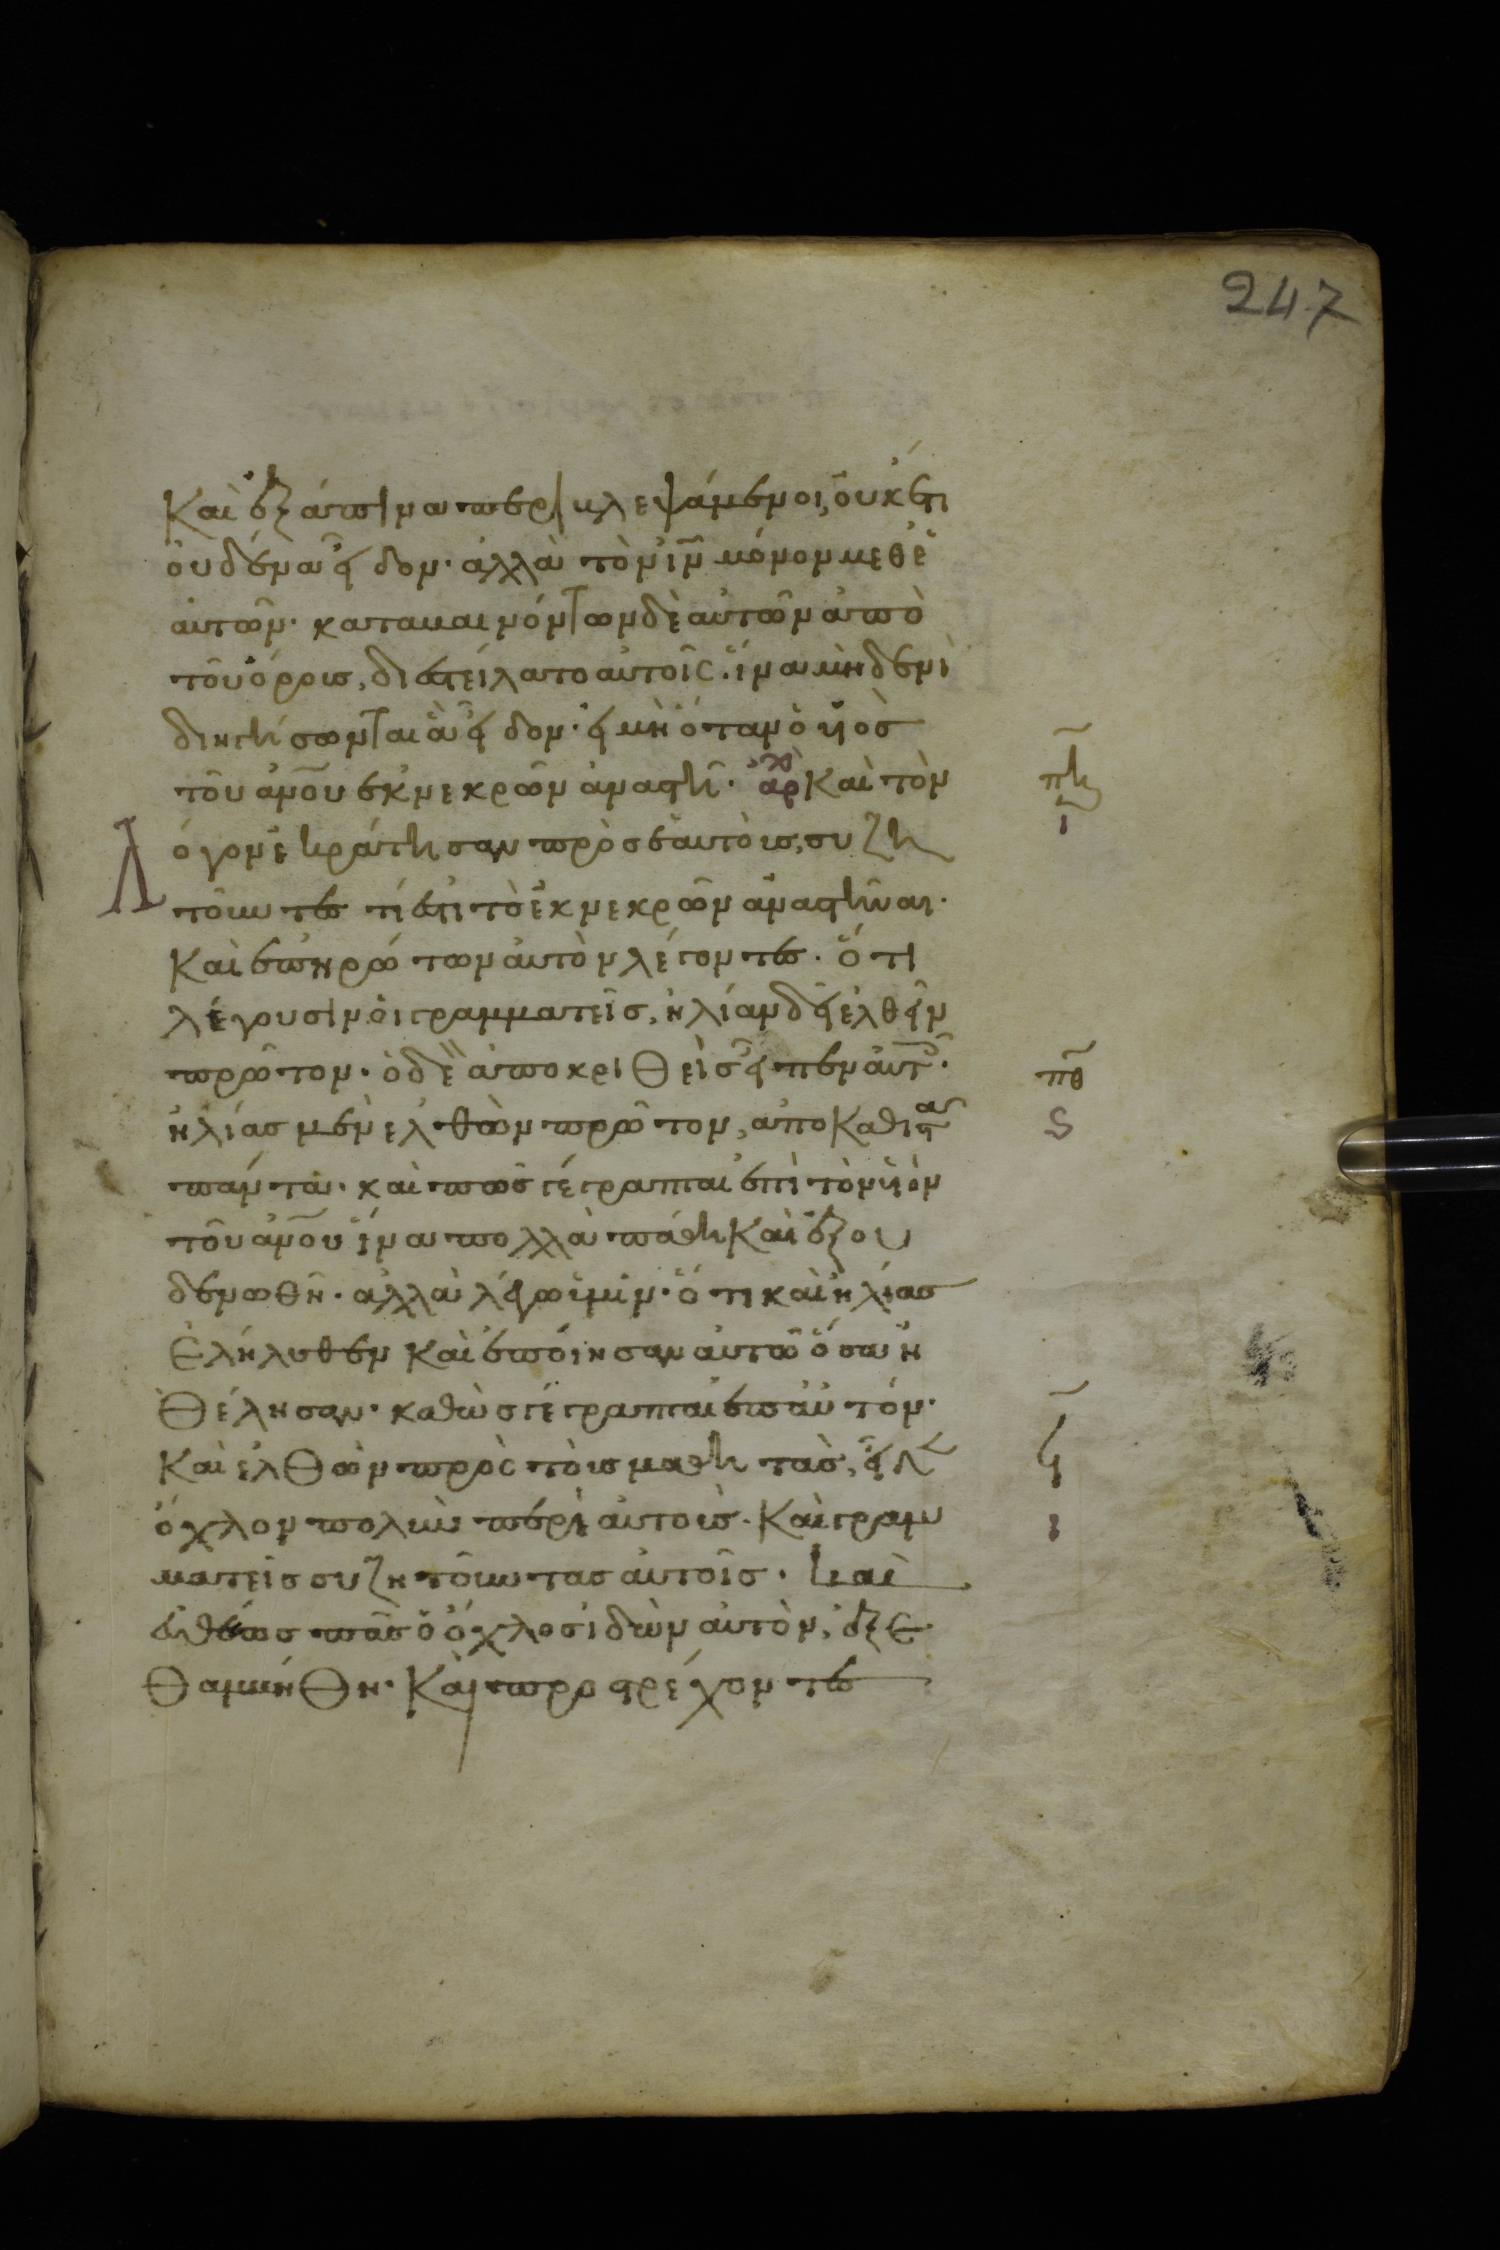 247
Καὶ ἐξάπινα περιβλεψάμενοι, οὐκέτι
οὐδένα εἶδον· ἀλλὰ τὸν ἰν̅ μόνον μεθ' ἑ
αυτῶν· καταβαινόντων δὲ αὐτῶν ἀπὸ
τοῦ ὄρους, διεστείλατο αὐτοῖς· ἵνα μηδενὶ
διηγήσωνται ἃ εἶδον· εἰ μὴ ὅταν ὁ υἱὸς
τοῦ ἀνο̅υ ἐκ νεκρῶν ἀναστῆ· ἀρχ Καὶ τὸν
λόγον ἐκράτησαν πρὸς ἑαυτοὺς, συζη
τοῦντες τί ἐστι τὸ ἐκ νεκρῶν ἀναστῆναι·
Καὶ ἐπηρώτων αὐτὸν λέγοντες· ὅτι
λέγουσιν οἱ γραμματεῖς, ἠλίαν δεῖ ἐλθεῖν
πρῶτον· ὁ δὲ ἀποκριθεὶς εἶπεν αὐτοῖς·
ἠλίας μὲν ἐλθὼν πρῶτον, ἀποκαθιστᾶ
πάντα· καὶ πῶς γέγραπται ἐπὶ τὸν υἱὸν
τοῦ ἀνο̅υ ἵνα πολλὰ πάθη Καὶ ἐξου
δενωθῆ· ἀλλὰ λέγω ὑμῖν· ὅτι καὶ ἠλίας
Ἐλήλυθεν Καὶ ἐποίησαν αὐτῶ ὅσα ἠ
Θέλησαν· καθὼς γέγραπται ἐπ' αὐτόν·
Καὶ ἐλθὼν πρὸς τοὺς μαθητὰς, εἶδεν
ὄχλον πολὺν περὶ αὐτοὺς· Καὶ γραμ
ματεῖς συζητοῦντας αὐτοῖς· Καὶ
εὐθέως πᾶς ὁ ὄχλος ἰδὼν αὐτὸν, ἐξε
Θαμβήθη· Καὶ προστρέχοντες
πη̅
ι
πθ̅
ς
ϟ̅
ι